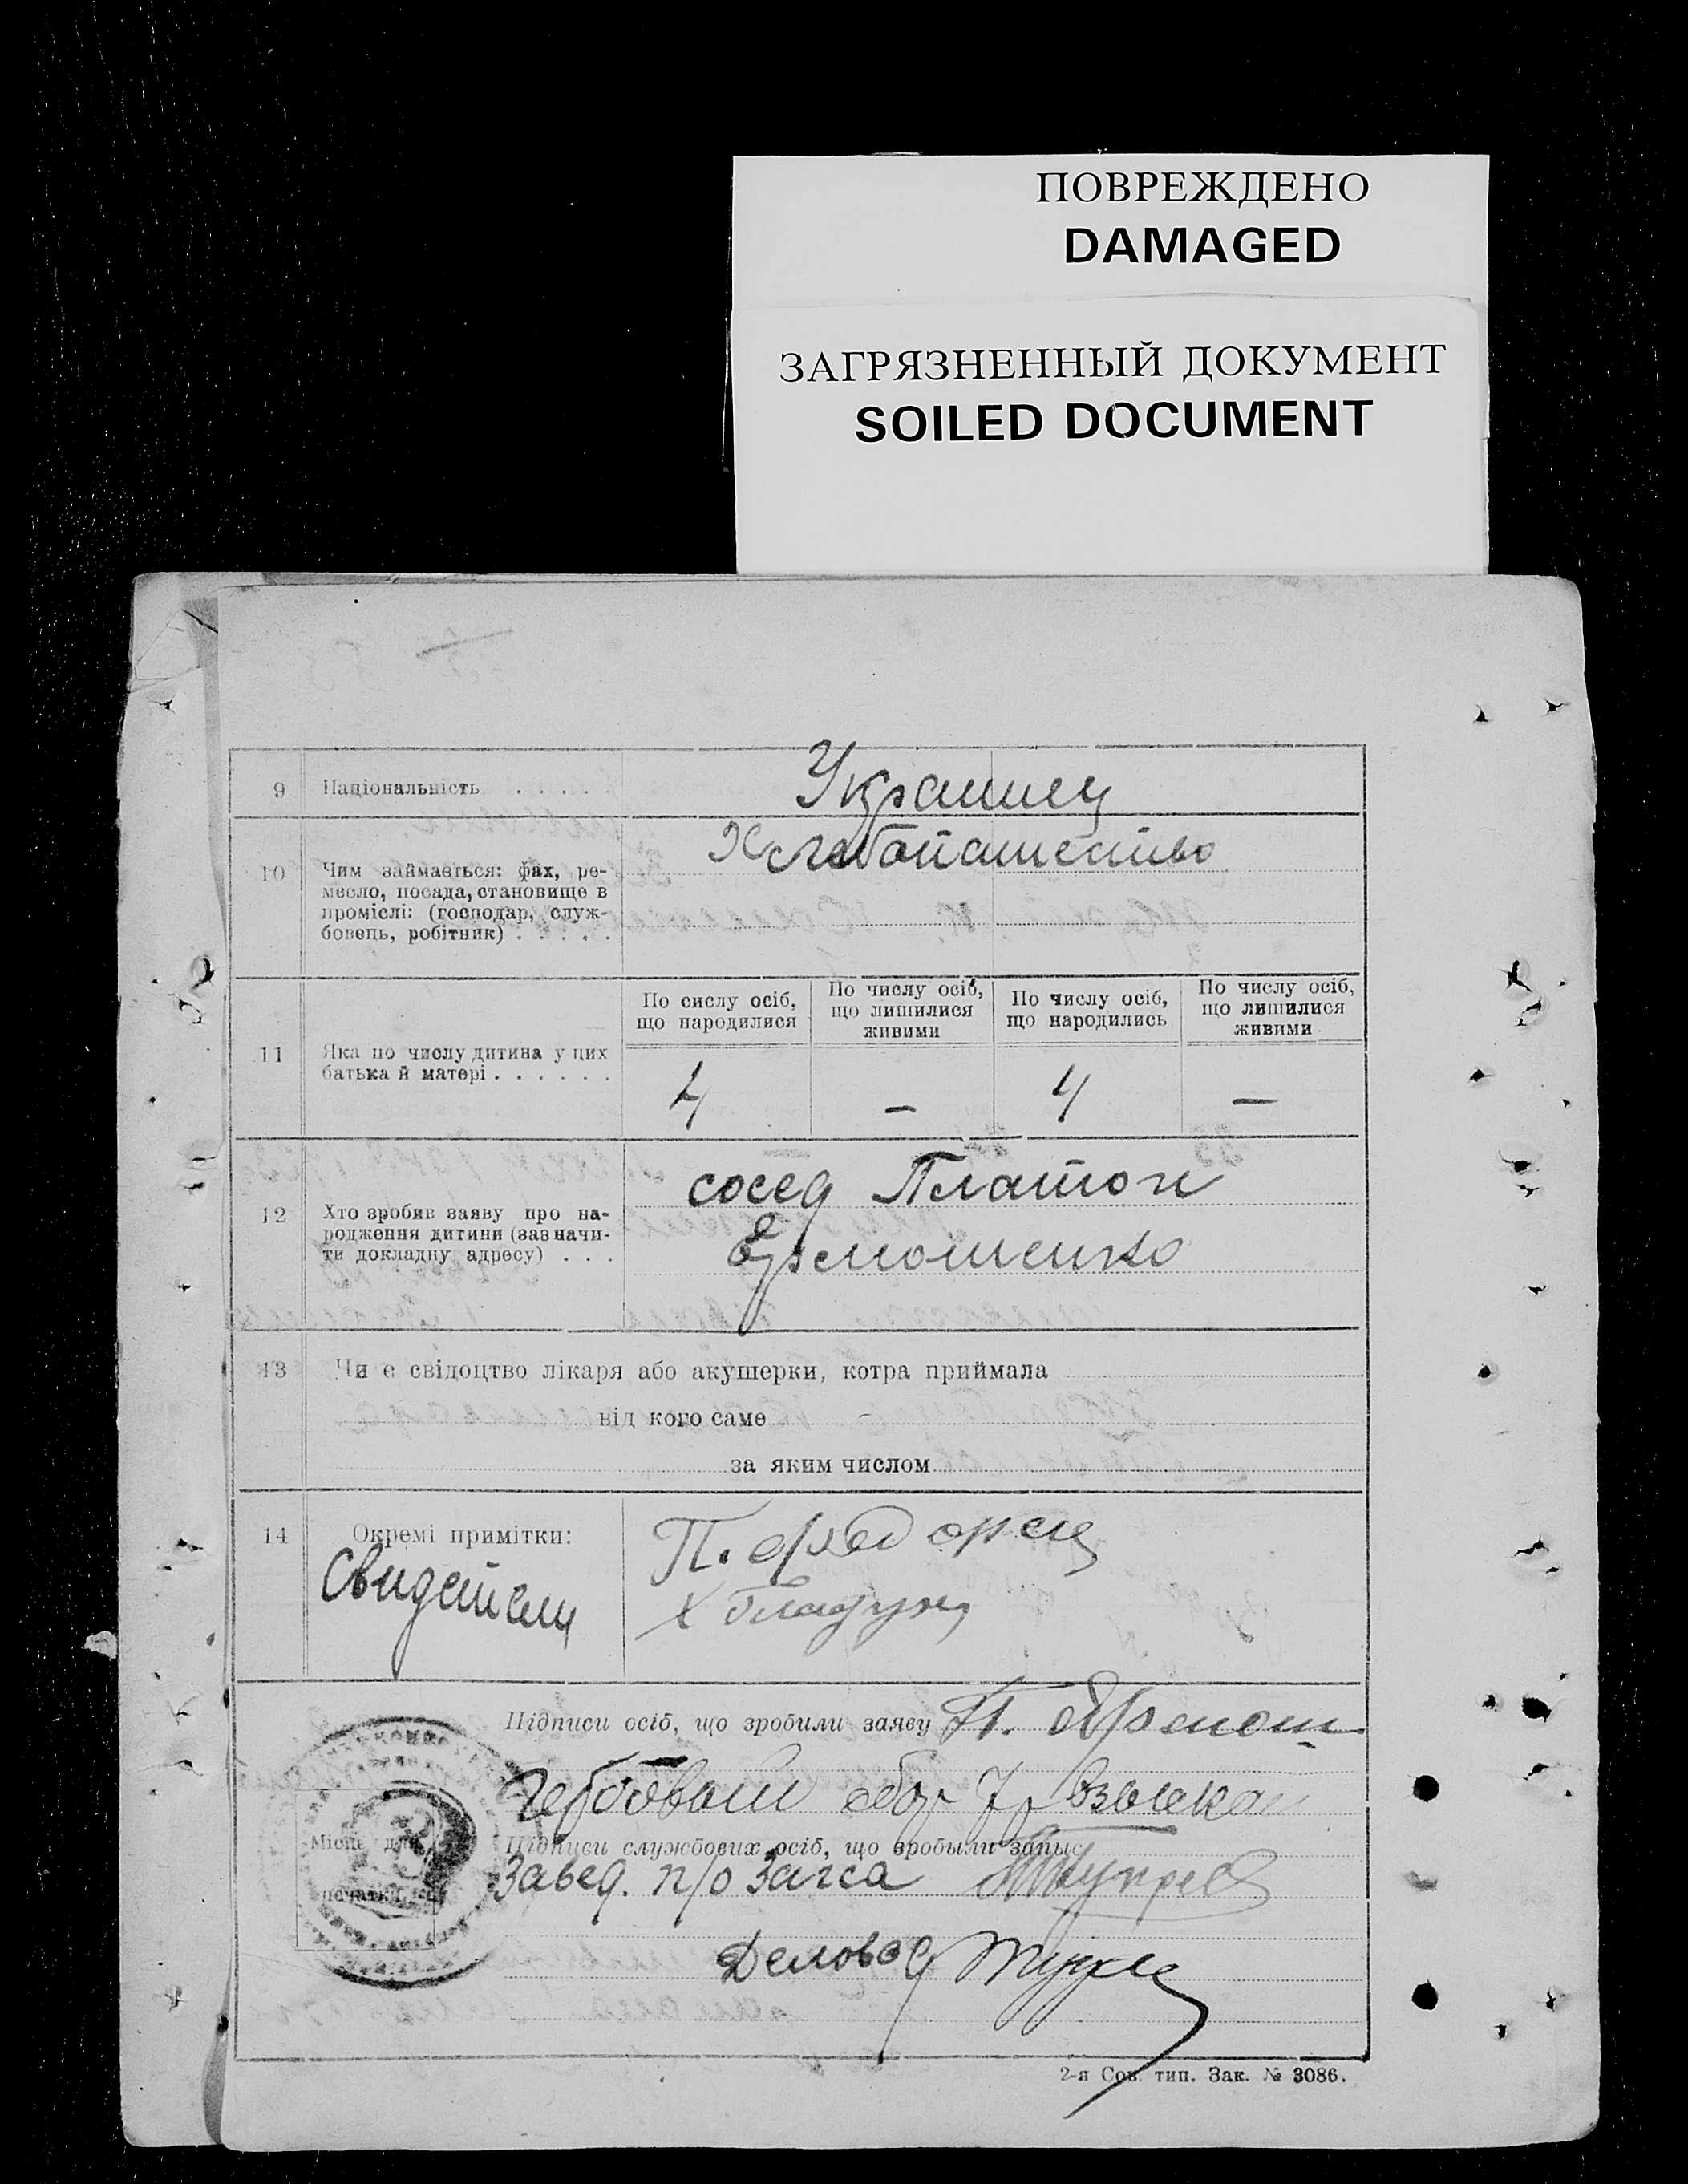 ПОВРЕЖДЕНО
DAMAGED
ЗАГРЯЗНЕННЫЙ ДОКУМЕНТ
SOILED DOCUMENT
9 Національність . . . . . Украинец
10 Чим займається: фах, ре-
месло, посада, становище в
проміслі: (господар, служ-
бовець, робітник) . . . . .
Хлебопашество
11 Яка по числу дитина у цих
батька й матері . . . . . .
По сислу осіб,
що народилися
По числу осіб,
що лишилися
живими
По числу осіб,
що народились
По числу осіб,
що лишилися
живими
4 – 4 –
12 Хто зробив заяву про на-
родження дитини (зазначи-
ти докладну адресу) . . .
сосед Платон
Ермошенко
13 Чи є свідоцтво лікаря або акушерки, котра приймала
від кого саме –
за яким числом
14 Окремі примітки:
Свидетели
П.
Х
Підписи осіб, що зробили заяву П.
Гербовый сбор взыскан
Місце для
печатки
Підписи службових осіб, що зробыли запыс
Завед. п/о Загса
Деловод
2-я Сов. тип. Зак. № 3086.